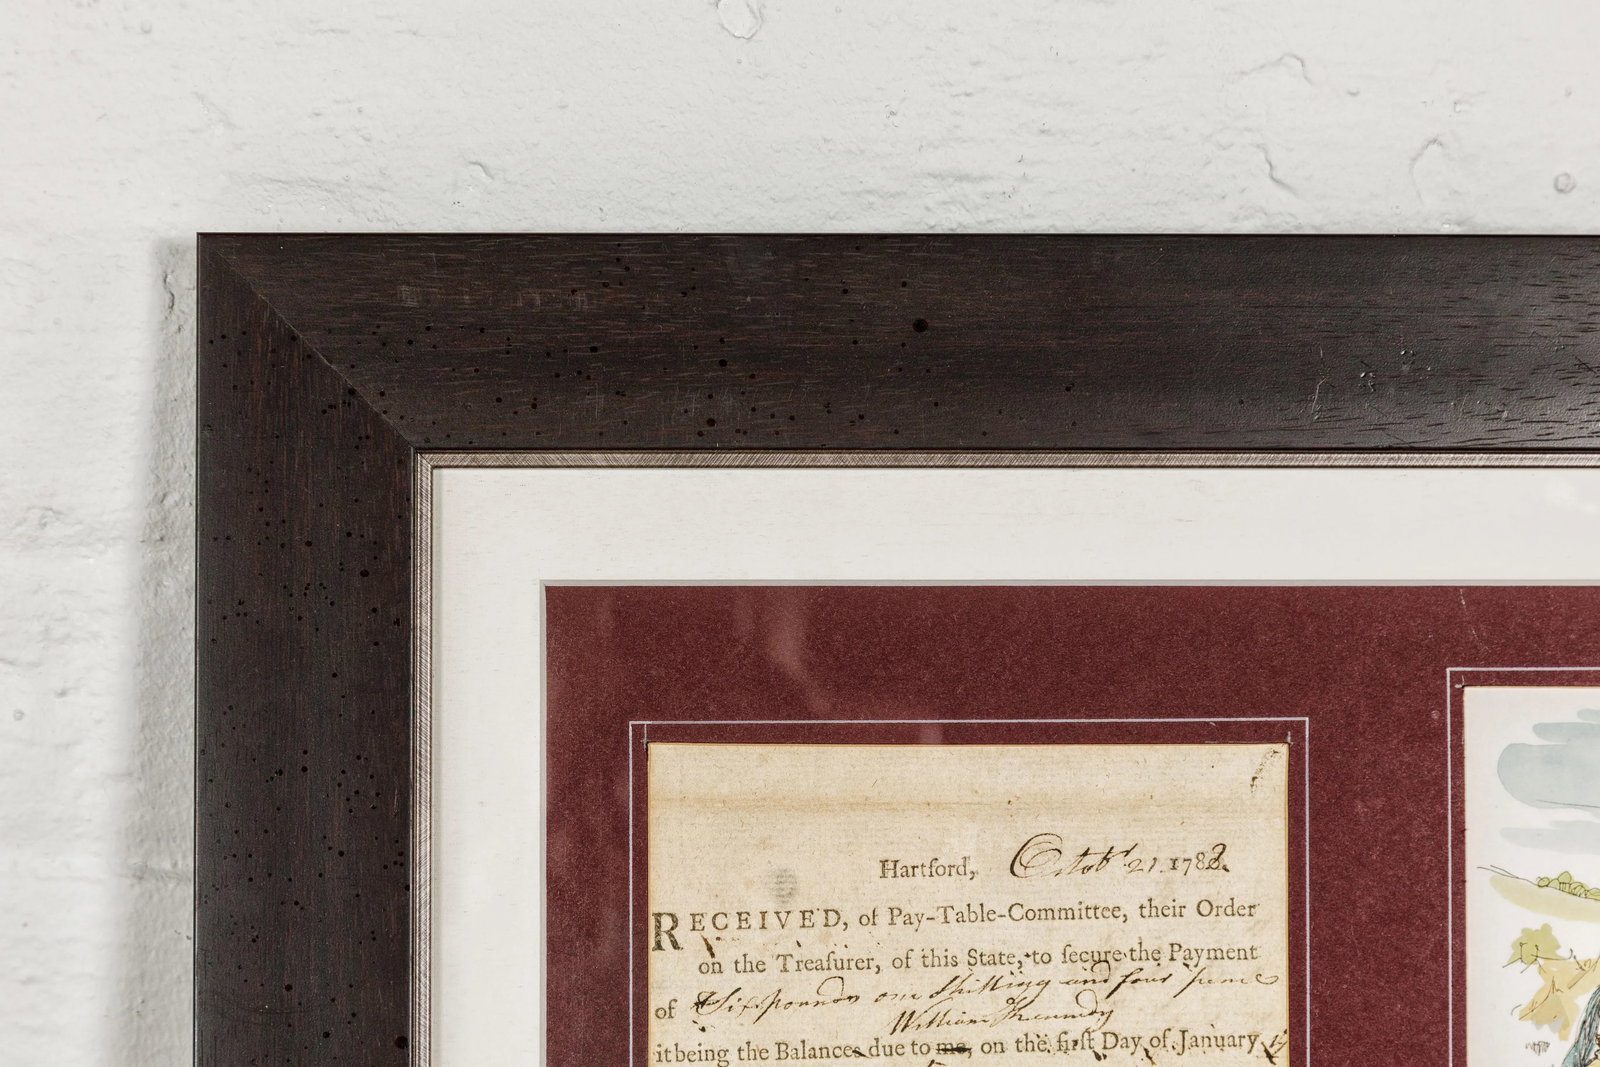 Hartford, Octobr 21. 1783.
RECEIVED, of Pay-Table-Committee, their Order
on the Treaſurer, of this State, to ſecure the Payment
of Six pounds one Shilling and four pence
William Kennedy
it being the Balances due to me, on the firſt Day of January